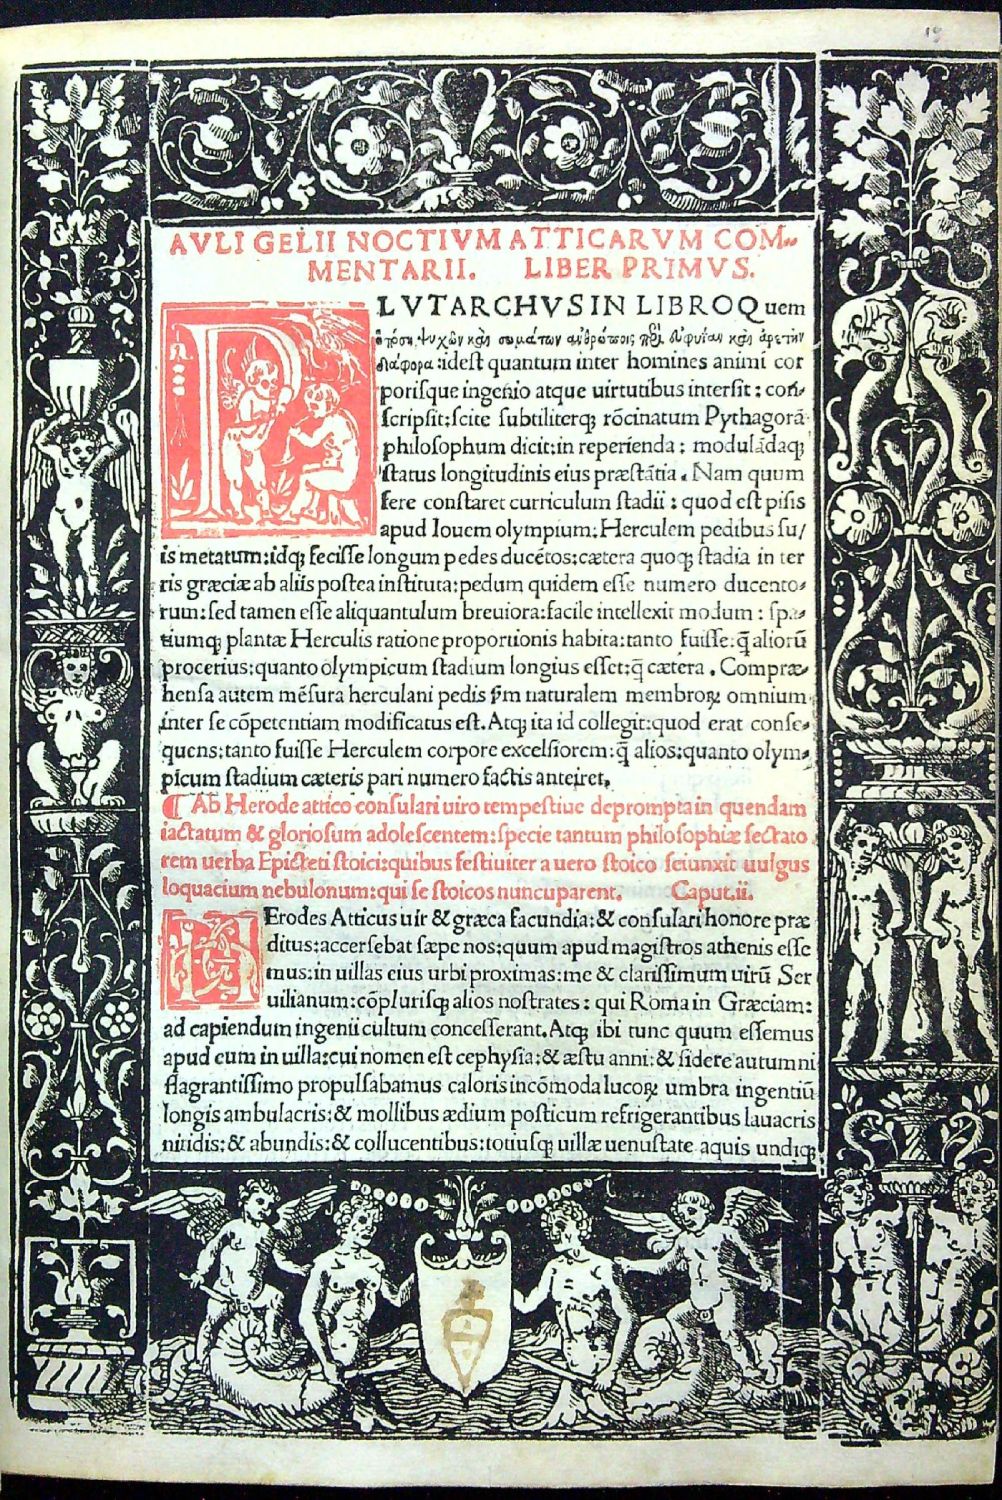 19
AVLI GELII NOCTIVM ATTICARVM COM⸗
MENTARII. LIBER PRIMVS.
PLVTARCHVS IN LIBRO Quem
ὁπόση ψυχῶν καὶ σωμάτων ἀνθρώποις περὶ εὐφυΐαν καὶ ἀρετὴν
διάφορα :idest quantum inter homines animi cor
poriſque ingenio atque uirtutibus interſit : con⸗
ſcripſit:ſcite ſubtiliterqꝫ rōcinatum Pythagorā
philoſophum dicit:in reperienda : modulādaqꝫ
ſtatus longitudinis eius præſtātia. Nam quum
fere conſtaret curriculum ſtadii : quod eſt piſis
apud Iouem olympium: Herculem pedibus ſu/
is metatum:idqꝫ feciſſe longum pedes ducētos:cætera quoqꝫ ſtadia in ter
ris græciæ ab aliis poſtea inſtituta:pedum quidem eſſe numero ducento⸗
rum:ſed tamen eſſe aliquantulum breuiora:facile intellexit modum : ſpa⸗
tiumqꝫ plantæ Herculis ratione proportionis habita:tanto fuiſſe: q̄ aliorū
procerius:quanto olympicum ſtadium longius eſſet:q̄ cætera. Compræ⸗
henſa autem mēſura herculani pedis ẜm naturalem membroꝝ omnium
inter ſe cōpetentiam modificatus eſt. Atqꝫ ita id collegit:quod erat conſe⸗
quens:tanto fuiſſe Herculem corpore excelſiorem:q̄ alios:quanto olym⸗
picum ſtadium cæteris pari numero factis anteiret.
¶ Ab Herode attico conſulari uiro tempeſtiue deprompta in quendam
iactatum & glorioſum adoleſcentem:ſpecie tantum philoſophiæ ſectato
rem uerba Epicteti ſtoici:quibus feſtiuiter a uero ſtoico ſeiunxit uulgus
loquacium nebulonum:qui ſe ſtoicos nuncuparent. Caput.ii.
HErodes Atticus uir & græca facundia:& conſulari honore præ
ditus:accerſebat ſæpe nos:quum apud magiſtros athenis eſſe
mus:in uillas eius urbi proximas:me & clariſſimum uirū Ser
uilianum:cōpluriſqꝫ alios noſtrates : qui Roma in Græciam:
ad capiendum ingenii cultum conceſſerant. Atqꝫ ibi tunc quum eſſemus
apud eum in uilla:cui nomen eſt cephyſia:& æſtu anni:& ſidere autumni
flagrantiſſimo propulſabamus caloris incōmoda lucoꝝ umbra ingentiū
longis ambulacris:& mollibus ædium poſticum refrigerantibus lauacris
nitidis:& abundis:& collucentibus:totiuſqꝫ uillæ uenuſtate aquis undiqꝫ